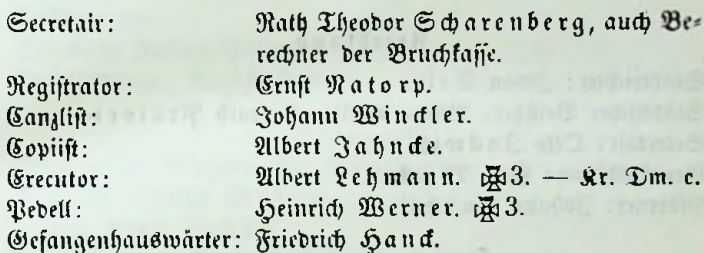 Secretair: Rath Theodor Scharenberg, auch Be=
rechner der Bruchkasse.
Registrator: Ernst Natorp.
Canzlist: Johann Winckler.
Copiist: Albert Jahncke.
Executor: Albert Lehmann. ✠3. — Kr. Dm. c.
Pedell: Heinrich Werner. ✠3.
Gefangenhauswärter: Friedrich Hanck.